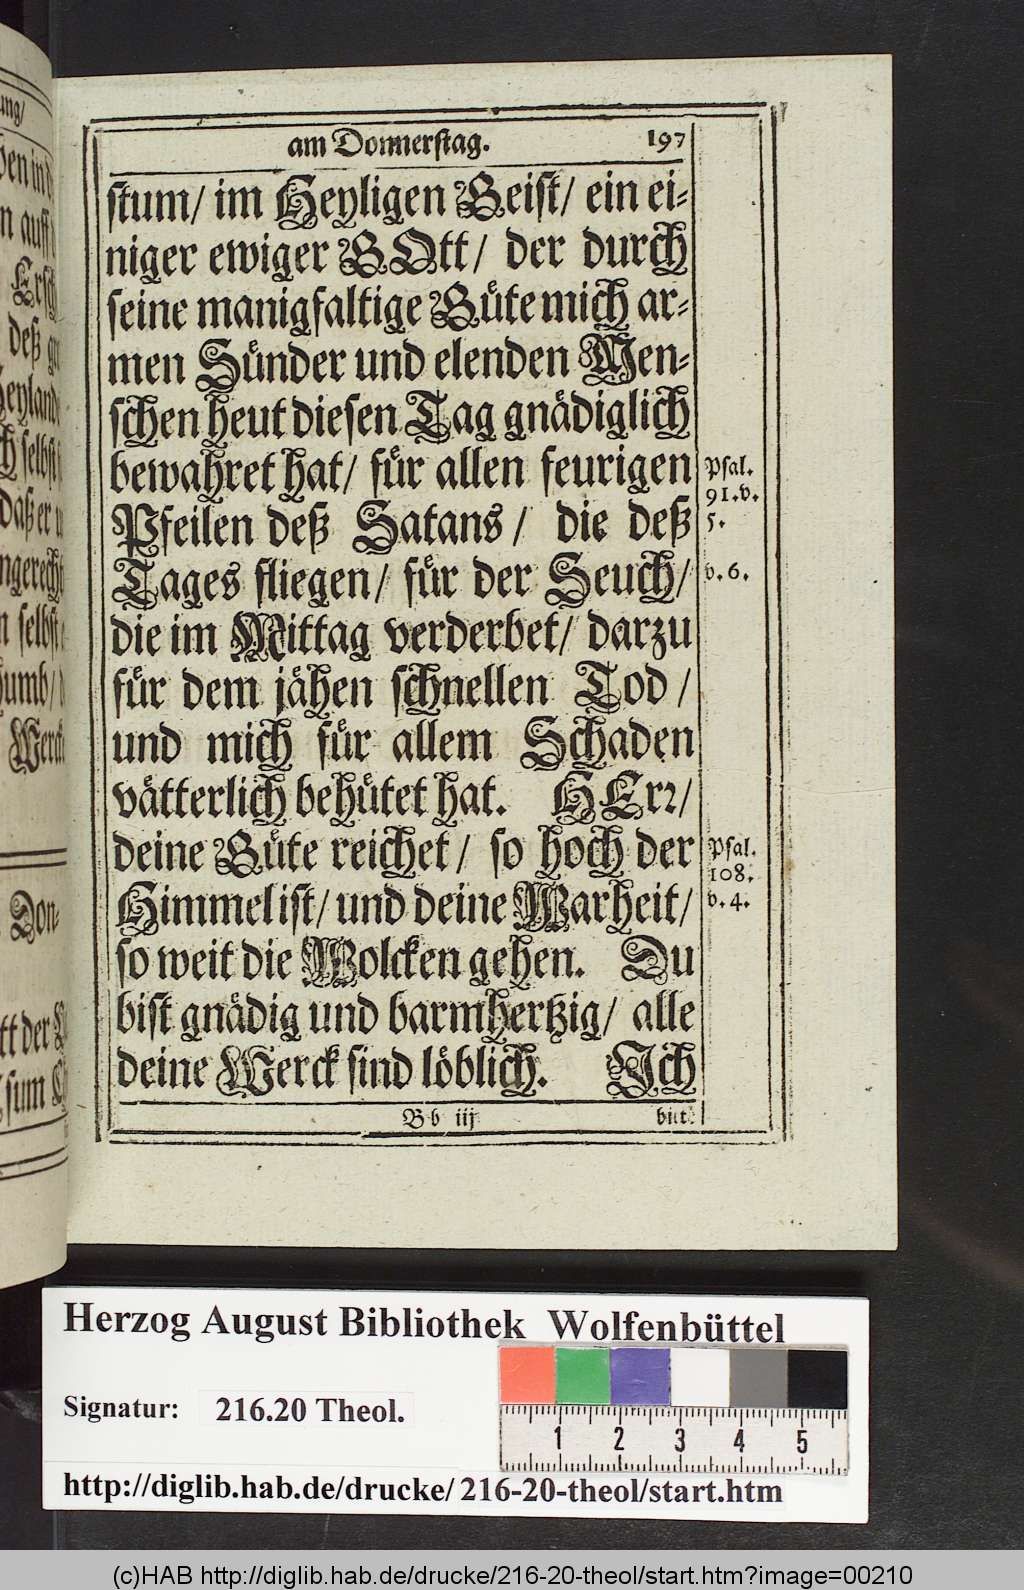 am Donnerstag. 197
stum/ im Heyligen Geist/ ein ei-
niger ewiger GOtt/ der durch
seine manigfaltige Güte mich ar-
men Sünder und elenden Men-
schen heut diesen Tag gnädiglich
bewahret hat/ für allen feurigen
Pfeilen deß Satans/ die deß
Tages fliegen/ für der Seuch/
die im Mittag verderbet/ darzu
für dem jähen schnellen Tod/
und mich für allem Schaden
vätterlich behütet hat. HErr/
deine Güte reichet/ so hoch der
Himmel ist/ und deine Warheit/
so weit die Wolcken gehen. Du
bist gnädig und barmhertzig/ alle
deine Werck sind löblich. Ich
Bb iij
Psal.
91. v.
5.
v. 6.
Psal.
108.
v. 4.
Ersch
deß
selbst
daß er
selbst
Werck
Don-
tt der
sum
Herzog August Bibliothek Wolfenbüttel
Signatur: 216.20 Theol.
1 2 3 4 5
http://diglib.hab.de/drucke/216-20-theol/start.htm
(c)HAB http://diglib.hab.de/drucke/216-20-theol/start.htm?image=00210